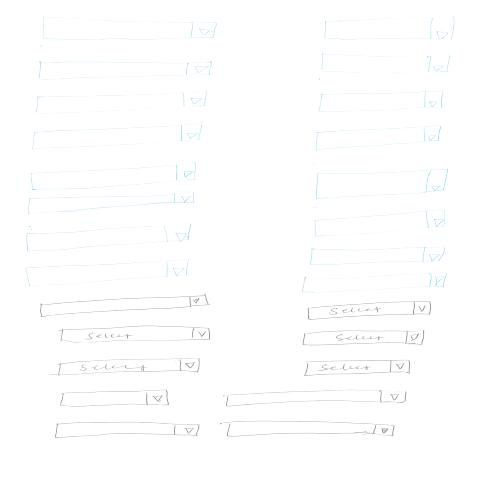 Select
Select
Select
Select
Select